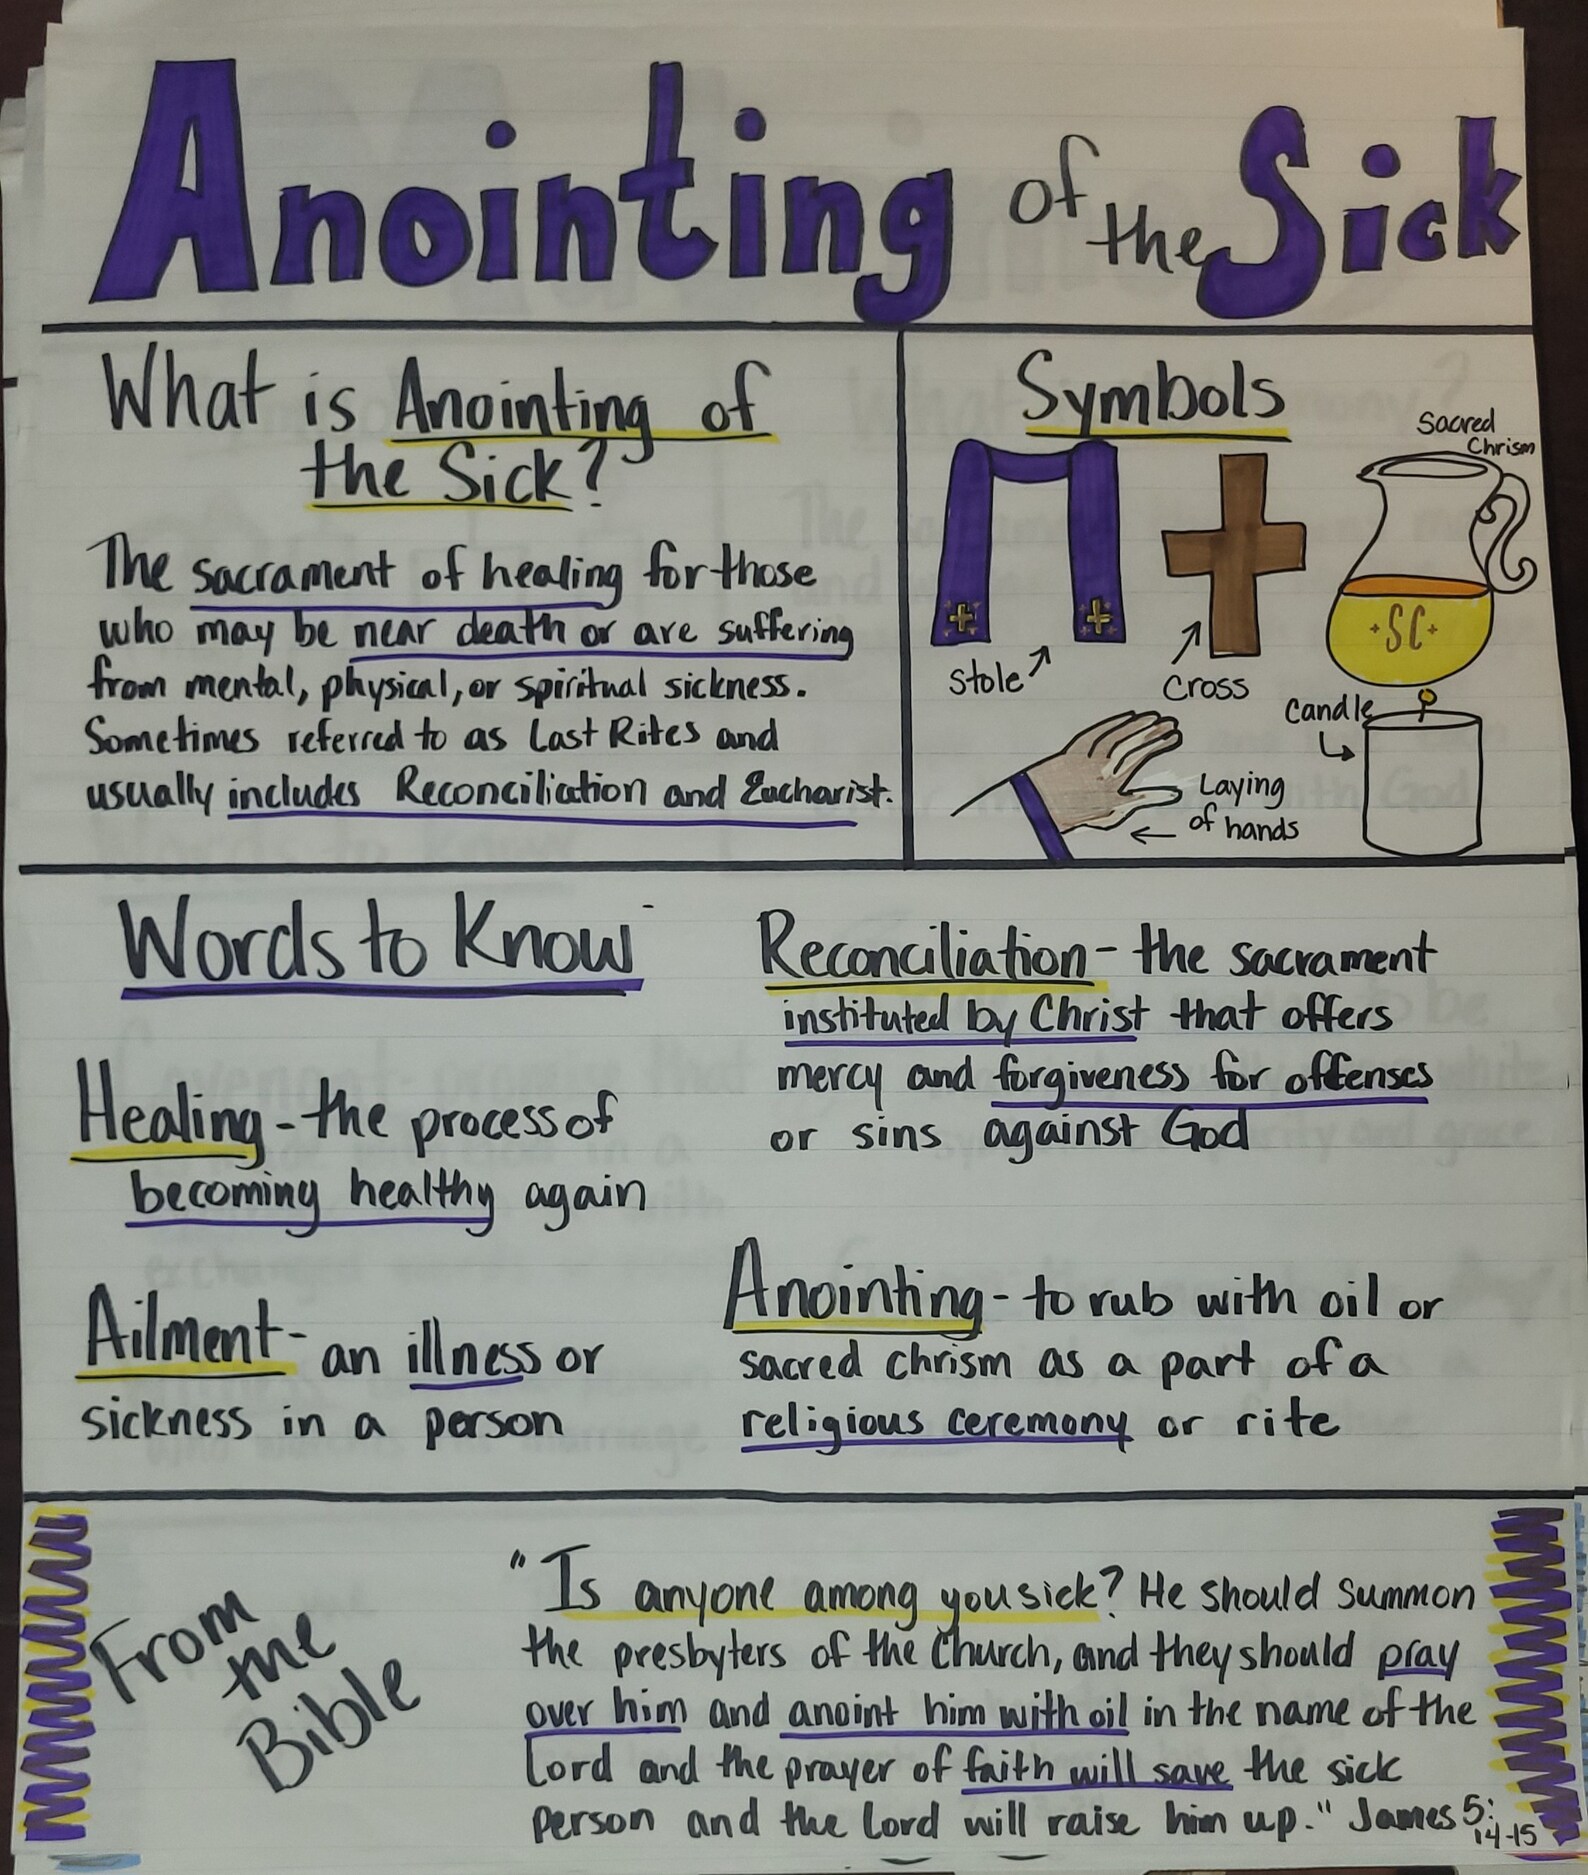 Anointing of the Sick
What is Anointing of
the Sick?
The sacrament of healing for those
who may be near death or are suffering
from mental, physical, or spiritual sickness.
Sometimes referred to as Last Rites and
usually includes Reconciliation and Eucharist.
Symbols
Sacred
Chrism
SC
Stole
Cross
Candle
Laying
of hands
Words to Know
Healing - the process of
becoming healthy again
Ailment - an illness or
sickness in a person
Reconciliation - the sacrament
instituted by Christ that offers
mercy and forgiveness for offenses
or sins against God
Anointing - to rub with oil or
sacred chrism as a part of a
religious ceremony or rite
From
the
Bible
"Is anyone among you sick? He should summon
the presbyters of the Church, and they should pray
over him and anoint him with oil in the name of the
Lord and the prayer of faith will save the sick
person and the Lord will raise him up." James 5:
14-15